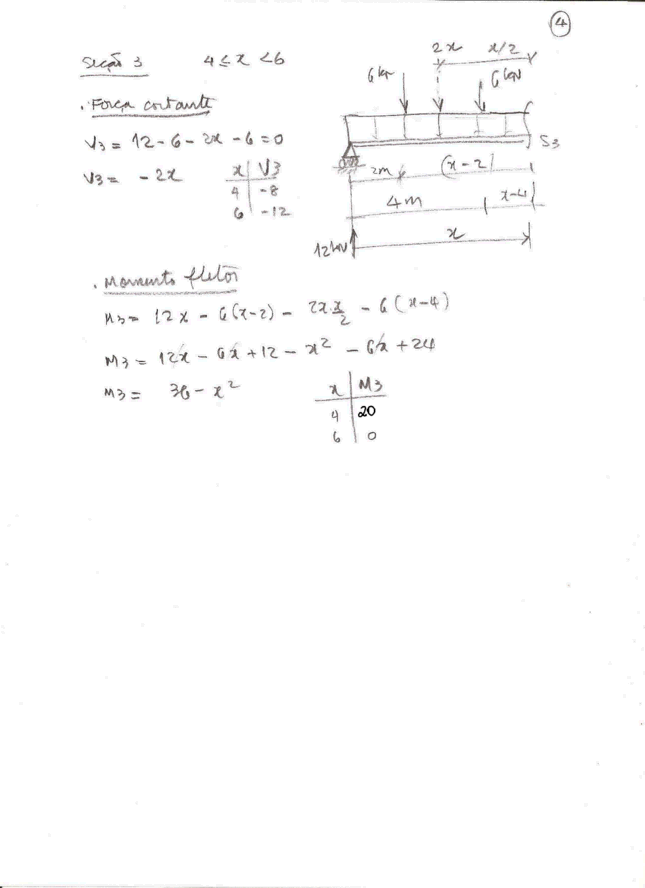 4
Secção 3 4 ≤ x < 6
. Força cortante
V3 = 12 - 6 - 2x - 6 = 0
V3 = - 2x
x | V3
4 | -8
6 | -12
2x x/2
6 kN 6 kN
S3
2m (x-2)
4m x-4
12 kN x
. Momento fletor
M3 = 12x - 6(x-2) - 2x.x/2 - 6(x-4)
M3 = 12x - 6x + 12 - x² - 6x + 24
M3 = 36 - x²
x | M3
4 | 20
6 | 0